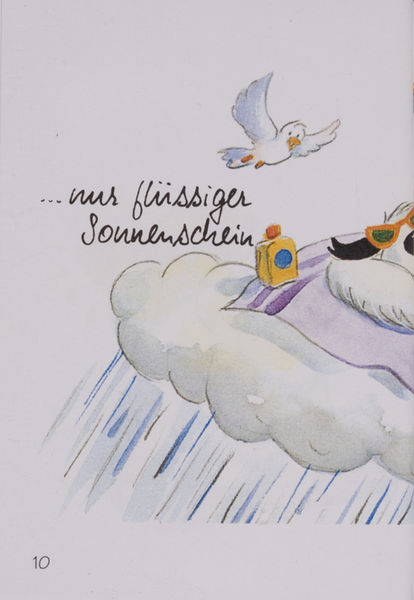 ...nur flüssiger
Sonnenschein
10